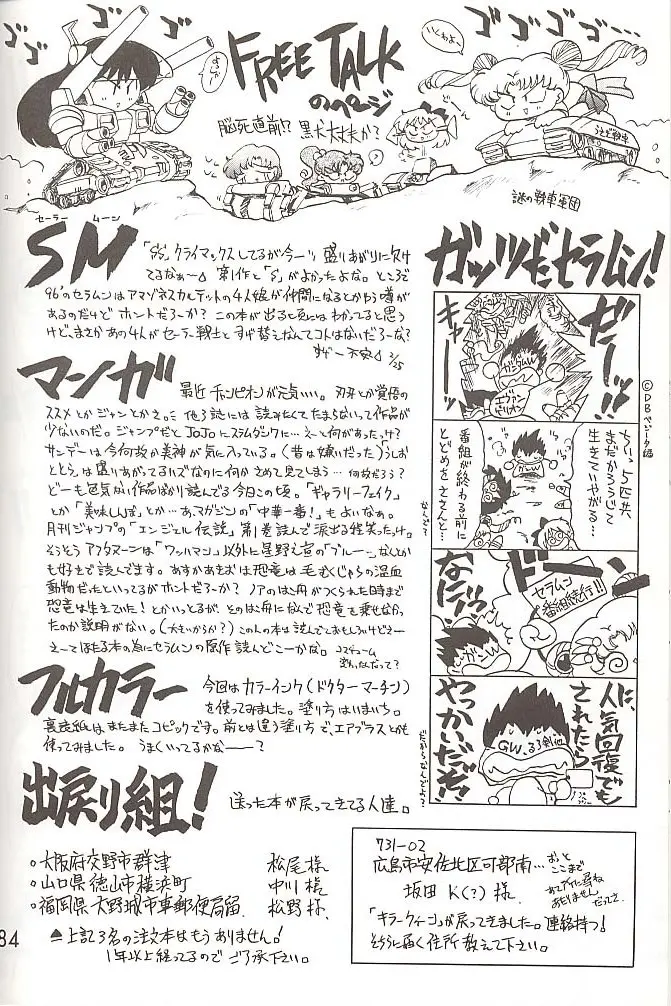 ゴゴゴ
ゴゴゴゴ
FREE TALK
のページ
いくわよー
脳死直前!? 黒犬大丈夫か?
謎の戦車軍団
セーラー ムーン
SM
「SS」クライマックスしてるが今一つ 盛りあがりに欠け
てるなぁ〜 第1作と「S」がよかったよな。ところで
96'のセラムンはアマゾネスカルテットの4人娘が仲間になるとかゆう噂が
あるのだけど ホントだろーか? この本が出ると頃にはわかってると思う
けど、まさかあの4人がセーラー戦士と すげ替えなんてコトはないだろーな?
すげー不安 2/25
マンガ
最近チャンピオンが元気いい。刃牙とか覚悟の
ススメとかジャンとかさ。 他3誌には読みたくてたまらないって作品が
少ないのだ。ジャンプだとJoJoにスラムダンクに…えーと何があったっけ?
サンデーは今何故か美神が気に入っている。(昔は嫌いだった)うしお
ととら、は盛りあがってるハズなのに何かさめて見てしまう…何故だろう?
どーも色気ない作品ばかり読んでる今日この頃。「ギャラリーフェイク」
とか「美味しんぼ」とか…あ、マガジンの「中華一番!」もよいなぁ。
月刊ジャンプの「エンジェル伝説」第1巻読んで涙出る程笑ったっけ。
そうそうアフタヌーンは「ワッハマン」以外に星野之宣の「ブルー」なんとか
も好きで読んでます。あすかあきおは恐竜は毛むくじゃらの温血
動物だったといってるがホントだろーか? ノアのはこ舟がつくられた時まで
恐竜は生きていた!とかいっとるが、そのはこ舟になんで恐竜を乗せなかっ
たのか説明がない。(大きいからか?)この人の本は読んどとおもしろいけどさー
えーてほたる本の為にセラムンの原作読んどこーかな。
フルカラー
今回はカラーインク(ドクターマーチン)
を使ってみました。塗り方はいまいち。
裏表紙はまたまたコピックです。前とは違う塗り方で、エアブラスとかも
使ってみました。 うまくいってるかな———?
出戻り組!
送った本が戻ってきてる人達。
○大阪府交野市群津 松尾様
○山口県徳山市横浜町 中川様
○福岡県大野城市車郵便局留 松野様
▲上記3名の注文本はもうありません!
1年以上経ってるのでご了承下さい。
84
ガッツだセラムン!
©DBベジータ編
ゼーッ!!
キャー
ガンダムW
エヴァンゲリオン
ちいっ、5匹共
まだかろうじて
生きていやがる…
番組が終わる前に
とどめをささんと…
なんで?
ドーン
セラムン
番組続行!!
なにィッ!
人気回復でも
されたら
やっかいだぞ!
GW.るろ剣他
だからなんでよ?
731-02
広島市安佐北区可部南…
おっと
ここまで
坂田 K(?) 様
「キラークイーン」が戻ってきました。連絡待つ!
そちらに届く住所教えて下さい。